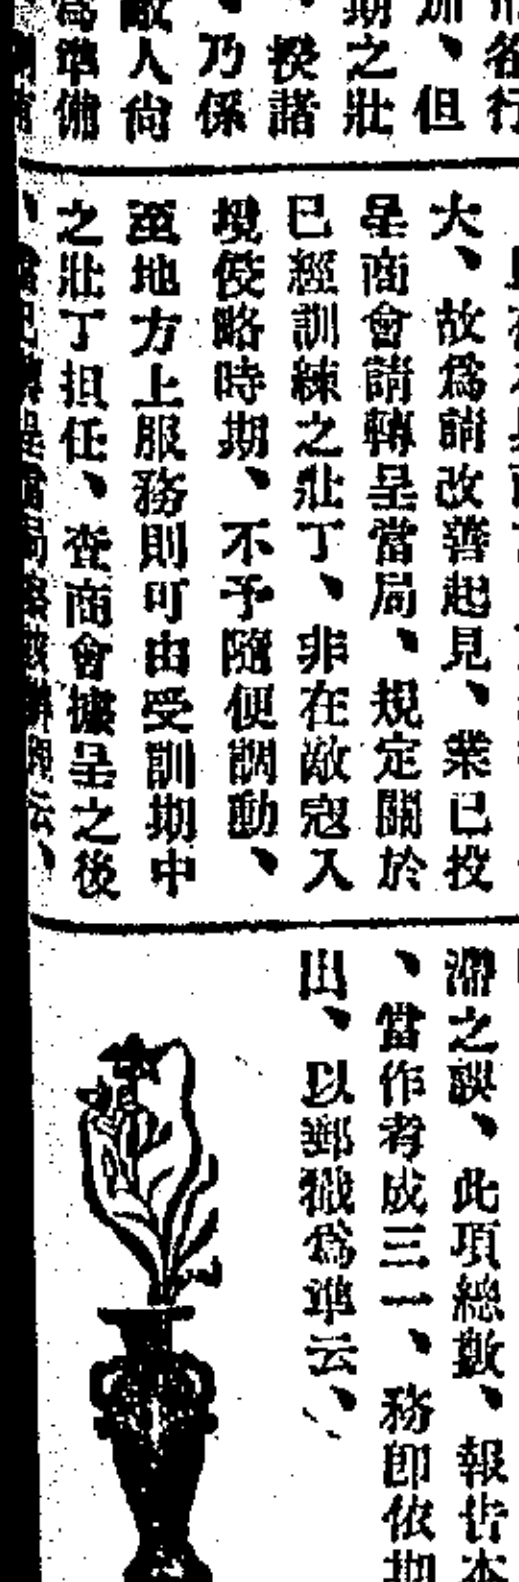 行
加、但
期之壯
揆諸
、乃係
敵人尙
爲準備
大、故爲請改善起見、業已投
呈商會請轉呈當局、規定關於
已經訓練之壯丁、非在敵寇入
境侵略時期、不予隨便調動、
至地方上服務則可由受訓期中
之壯丁担任、查商會據呈之後
滯之誤、此項總數、報告本
、當作者成三一、務即依期
出、以郵戳爲準云、